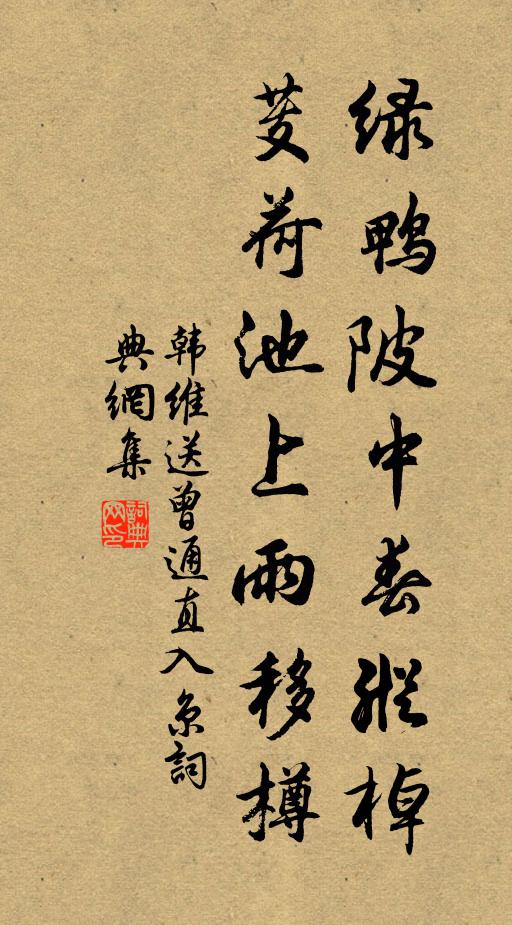 绿鸭陂中春纵棹
芰荷池上雨移樽
韩维送曾通直入京词
典网集
词典网印